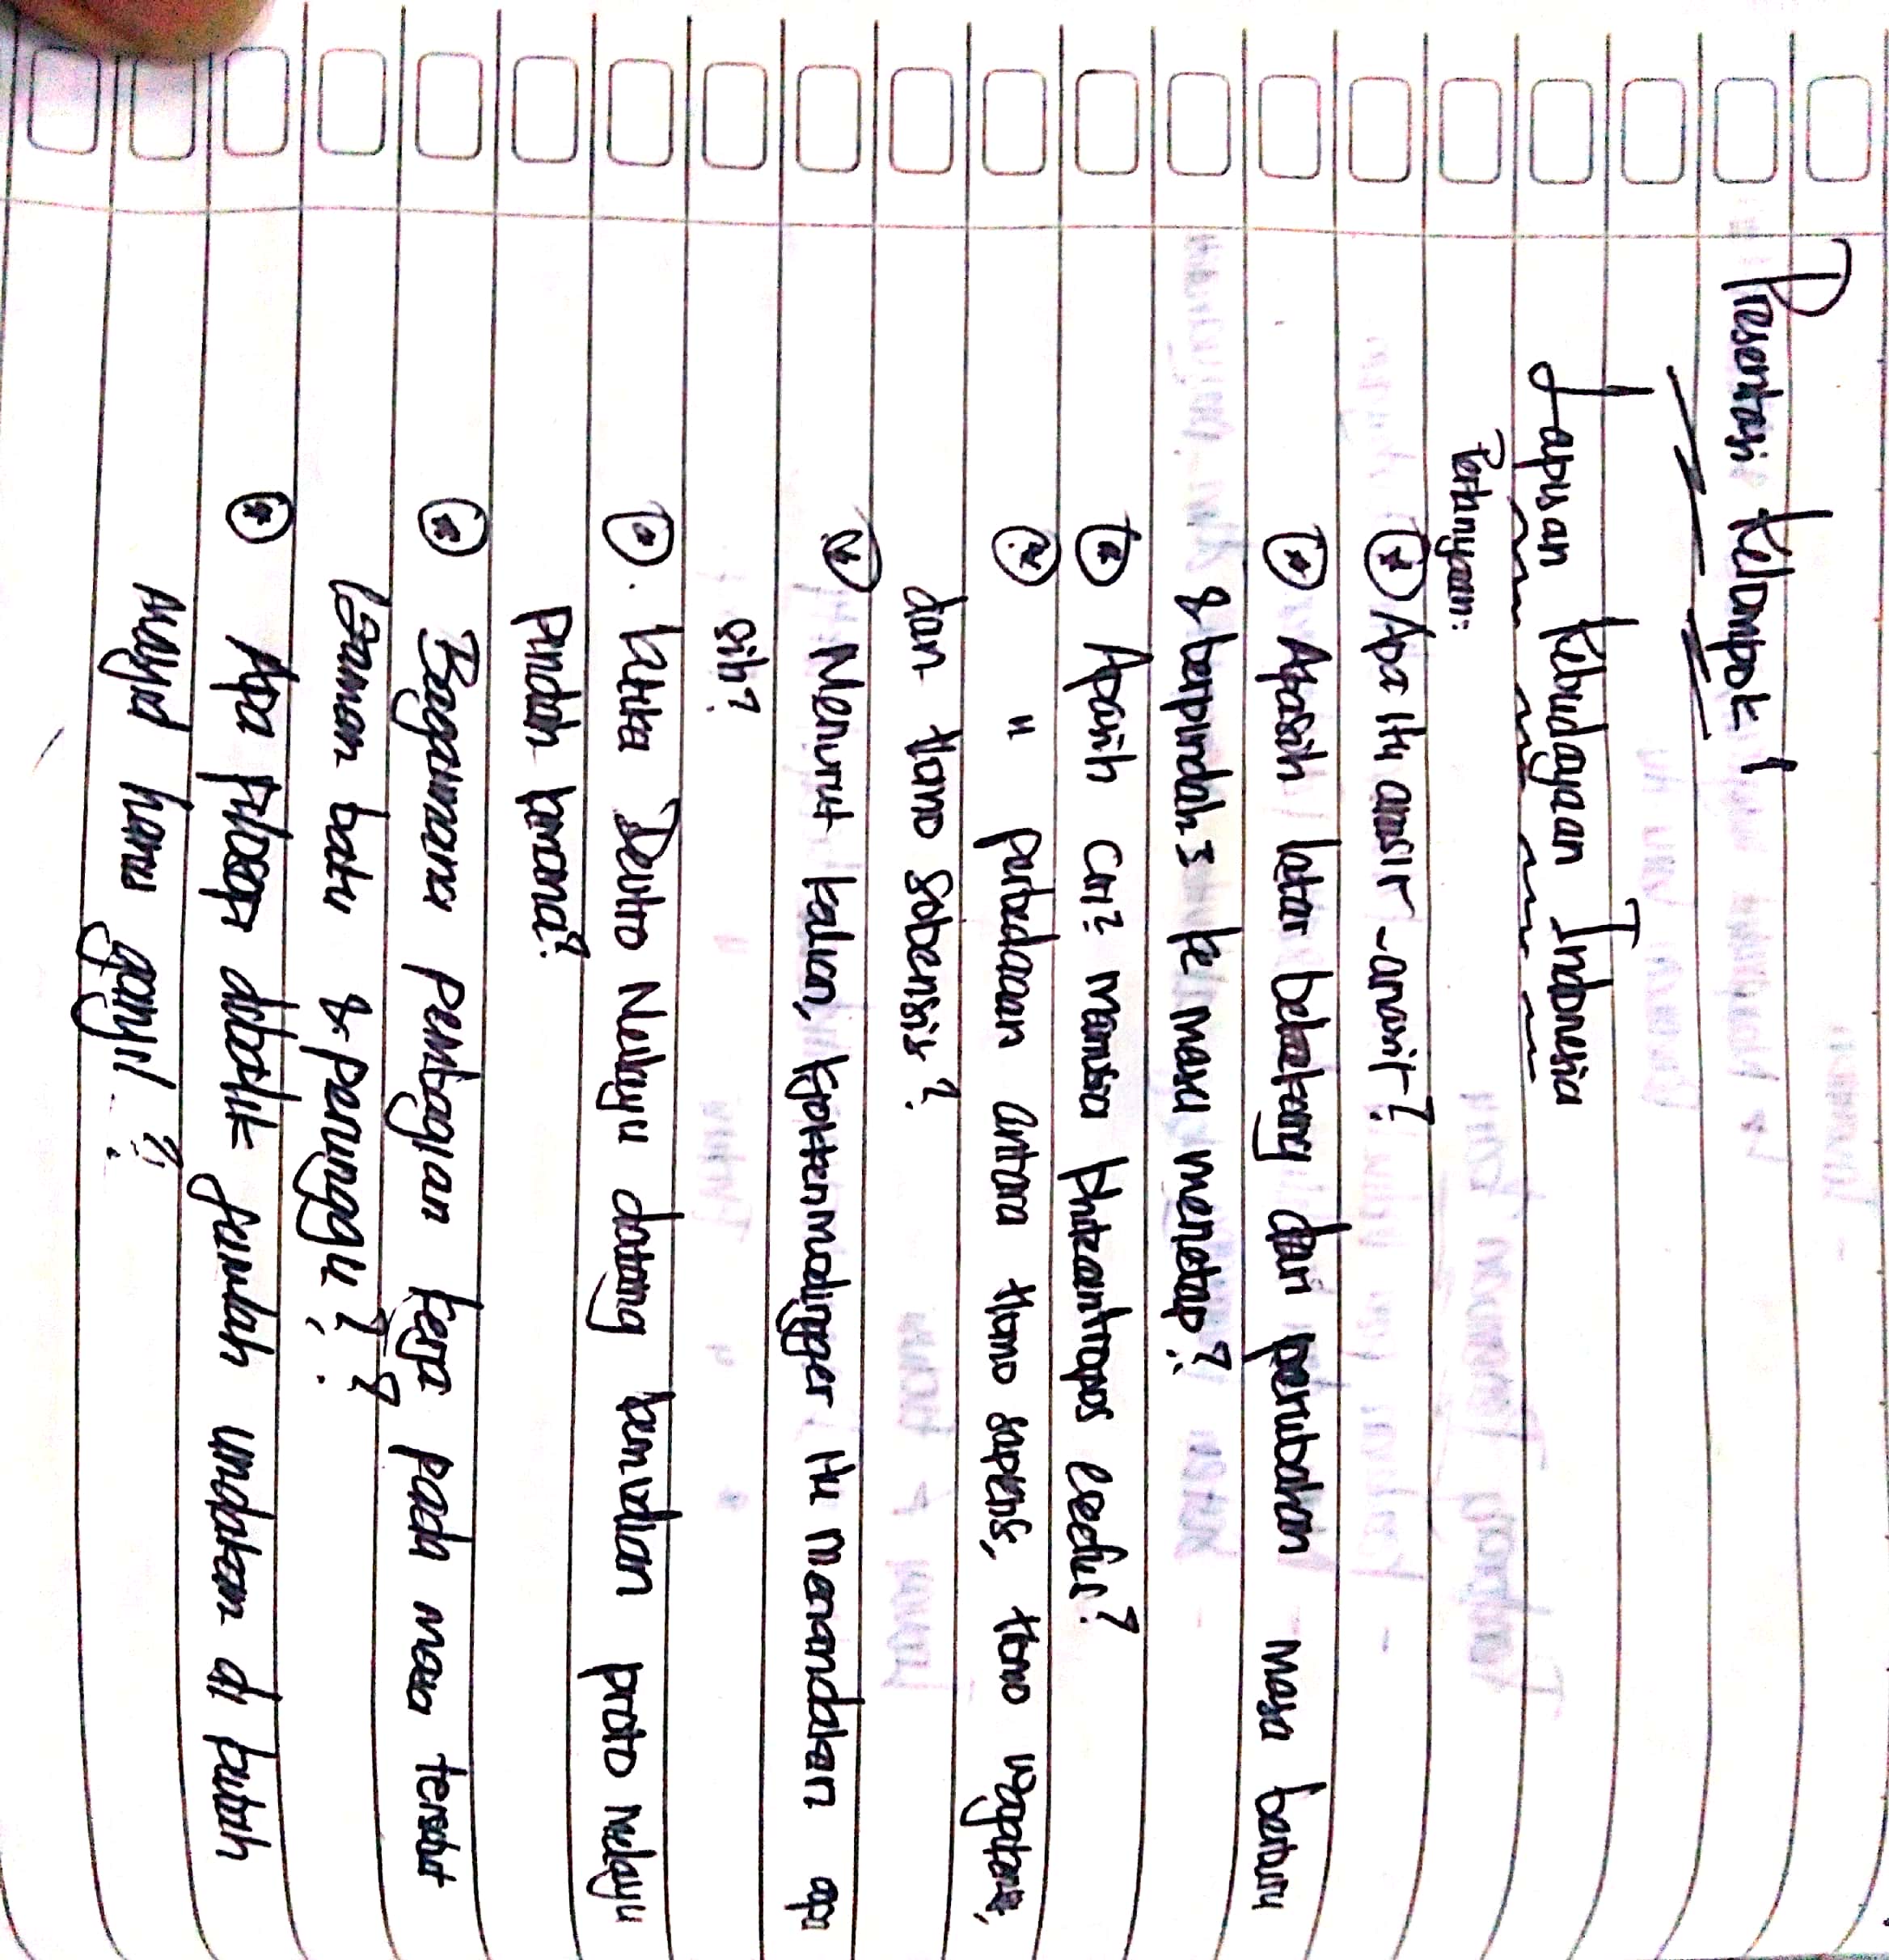 Presentasi Kelompok 1
Lapisan Kebudayaan Indonesia
Pertanyaan:
Apa itu anasir-anasir?
Apasih latar belakang dari perubahan masa berburu
& berpindah² ke masa menetap?
Apasih ciri² manusia phitecantropus erectus?
" perbedaan antara Homo sapiens, Homo wajakensis,
dan Homo soloensis?
Menurut kalian, kjokkenmodingger itu menandakan apa
sih?
Ketika Deutro Melayu datang kemudian proto melayu
pindah kemana?
Bagaimana pembagian kerja pada masa tersebut
(zaman batu & perunggu?)?
Apa filosopi dibalik jumlah undakan di punden
harus ganjil?